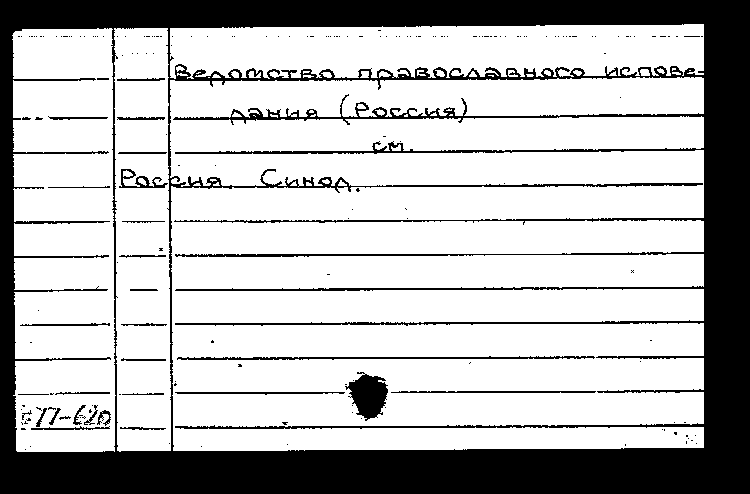 Ведомство православного испове-
дания (Россия)
см.
Россия. Синод.
77-620